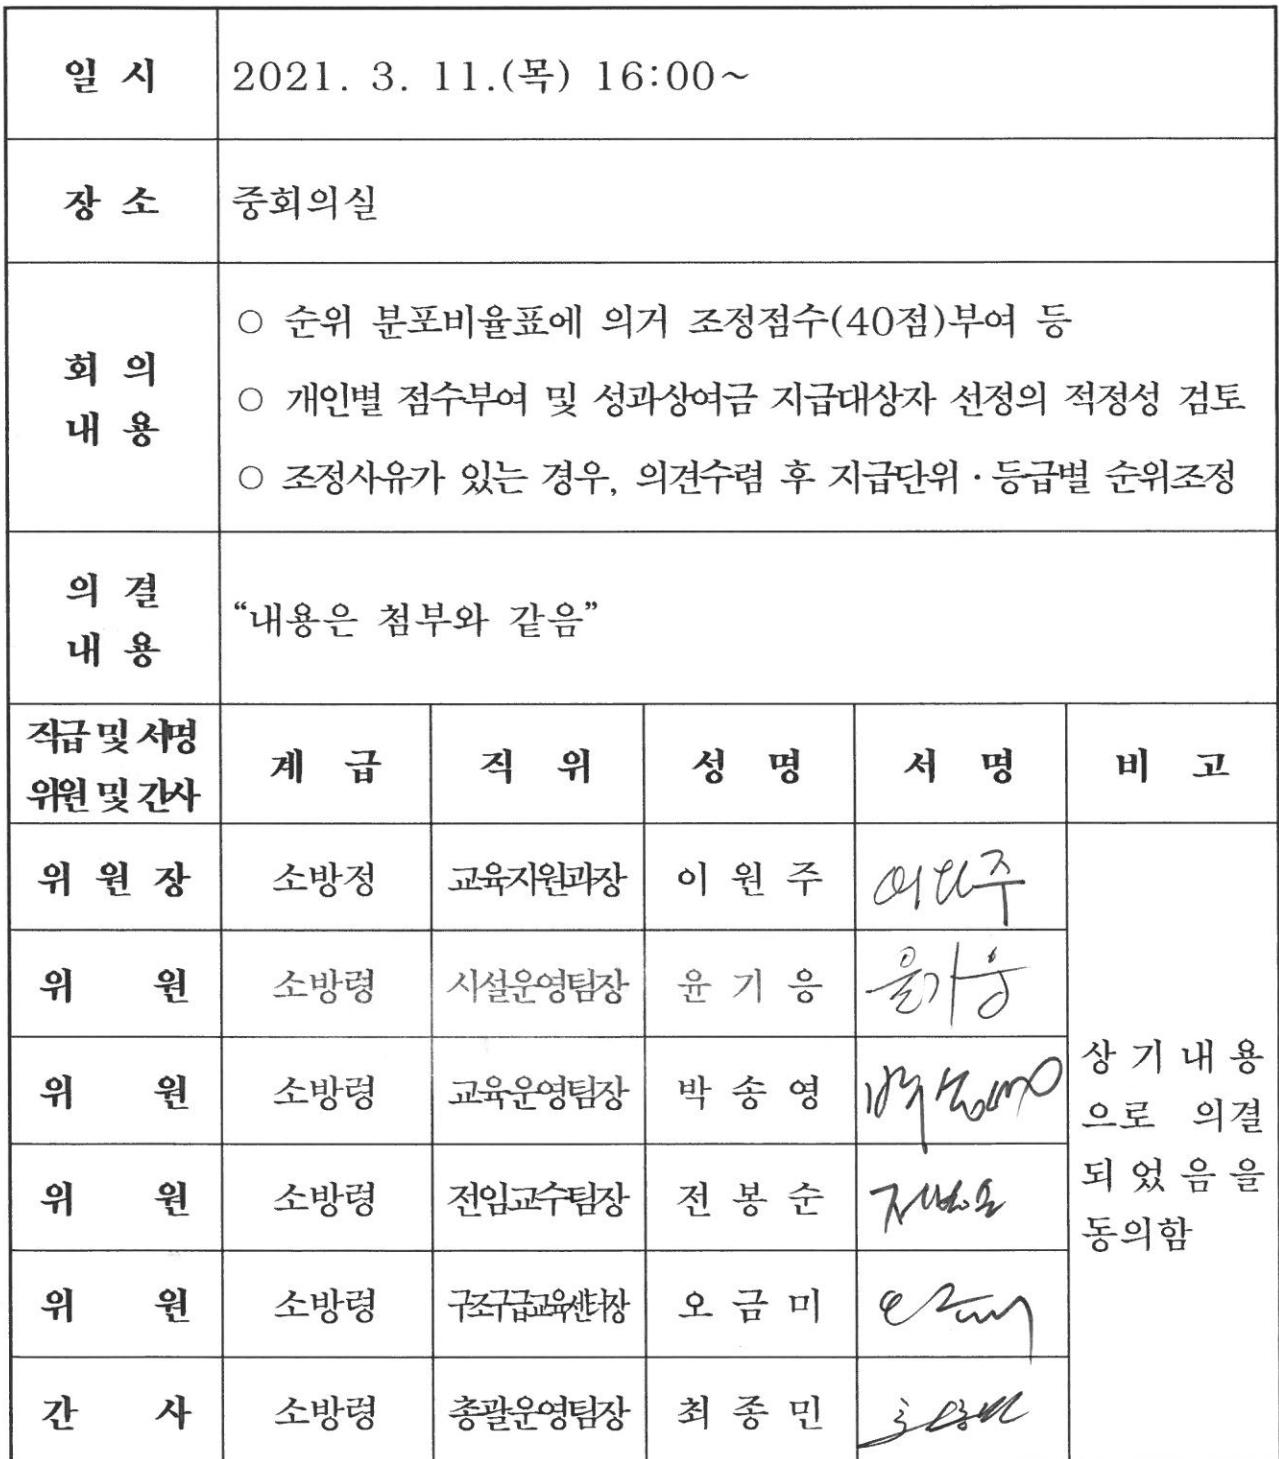 일 시 2021. 3. 11.(목) 16:00~
장 소 중회의실
회 의
내 용
○ 순위 분포비율표에 의거 조정점수(40점)부여 등
○ 개인별 점수부여 및 성과상여금 지급대상자 선정의 적정성 검토
○ 조정사유가 있는 경우, 의견수렴 후 지급단위·등급별 순위조정
의 결
내 용
“내용은 첨부와 같음”
직급 및 서명
위원 및 간사
계 급 직 위 성 명 서 명 비 고
위 원 장 소방정 교육지원과장 이 원 주 이원주
위 원 소방령 시설운영팀장 윤 기 응 윤기응
위 원 소방령 교육운영팀장 박 송 영
위 원 소방령 전임교수팀장 전 봉 순
위 원 소방령 구조구급교육센터장 오 금 미
간 사 소방령 총괄운영팀장 최 종 민
상 기 내 용
으로 의결
되 었 음 을
동의함